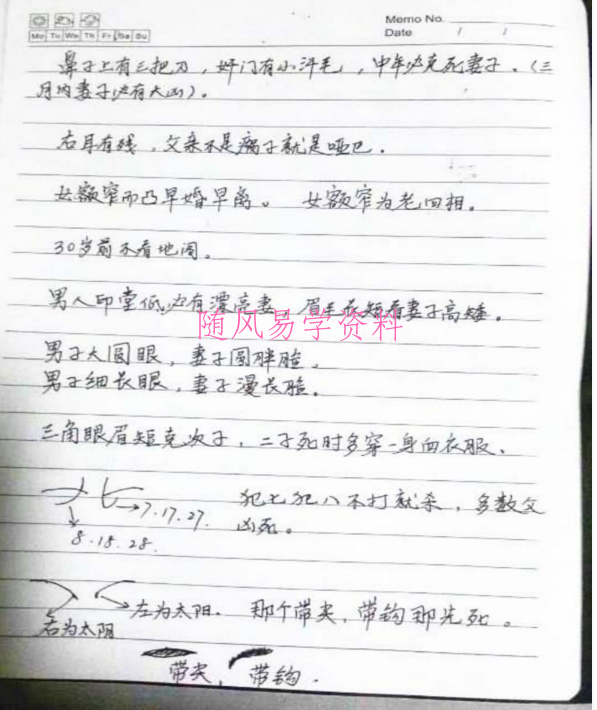 Memo No.
Mo Tu We Th Fr Sa Su
Date / /
鼻子上有三把刀，奸门有小汗毛，中年必克死妻子。（三
月内妻子必有大凶）。
右耳有残，父亲不是瘸子就是哑巴．
女额窄而凸早婚早离。 女额窄为老回相。
30岁前不看地阁。
男人印堂低必有漂亮妻 眉毛长短看妻子高矮．
随风易学资料
男子大圆眼，妻子圆胖脸．
男子细长眼，妻子漫长脸．
三角眼眉短克次子，二子死时多穿一身血衣服．
7.17.27. 犯七犯八不打就杀，多数父
8.18.28. 凶死。
左为太阳． 那个带尖，带钩那先死。
右为太阴
带尖， 带钩．